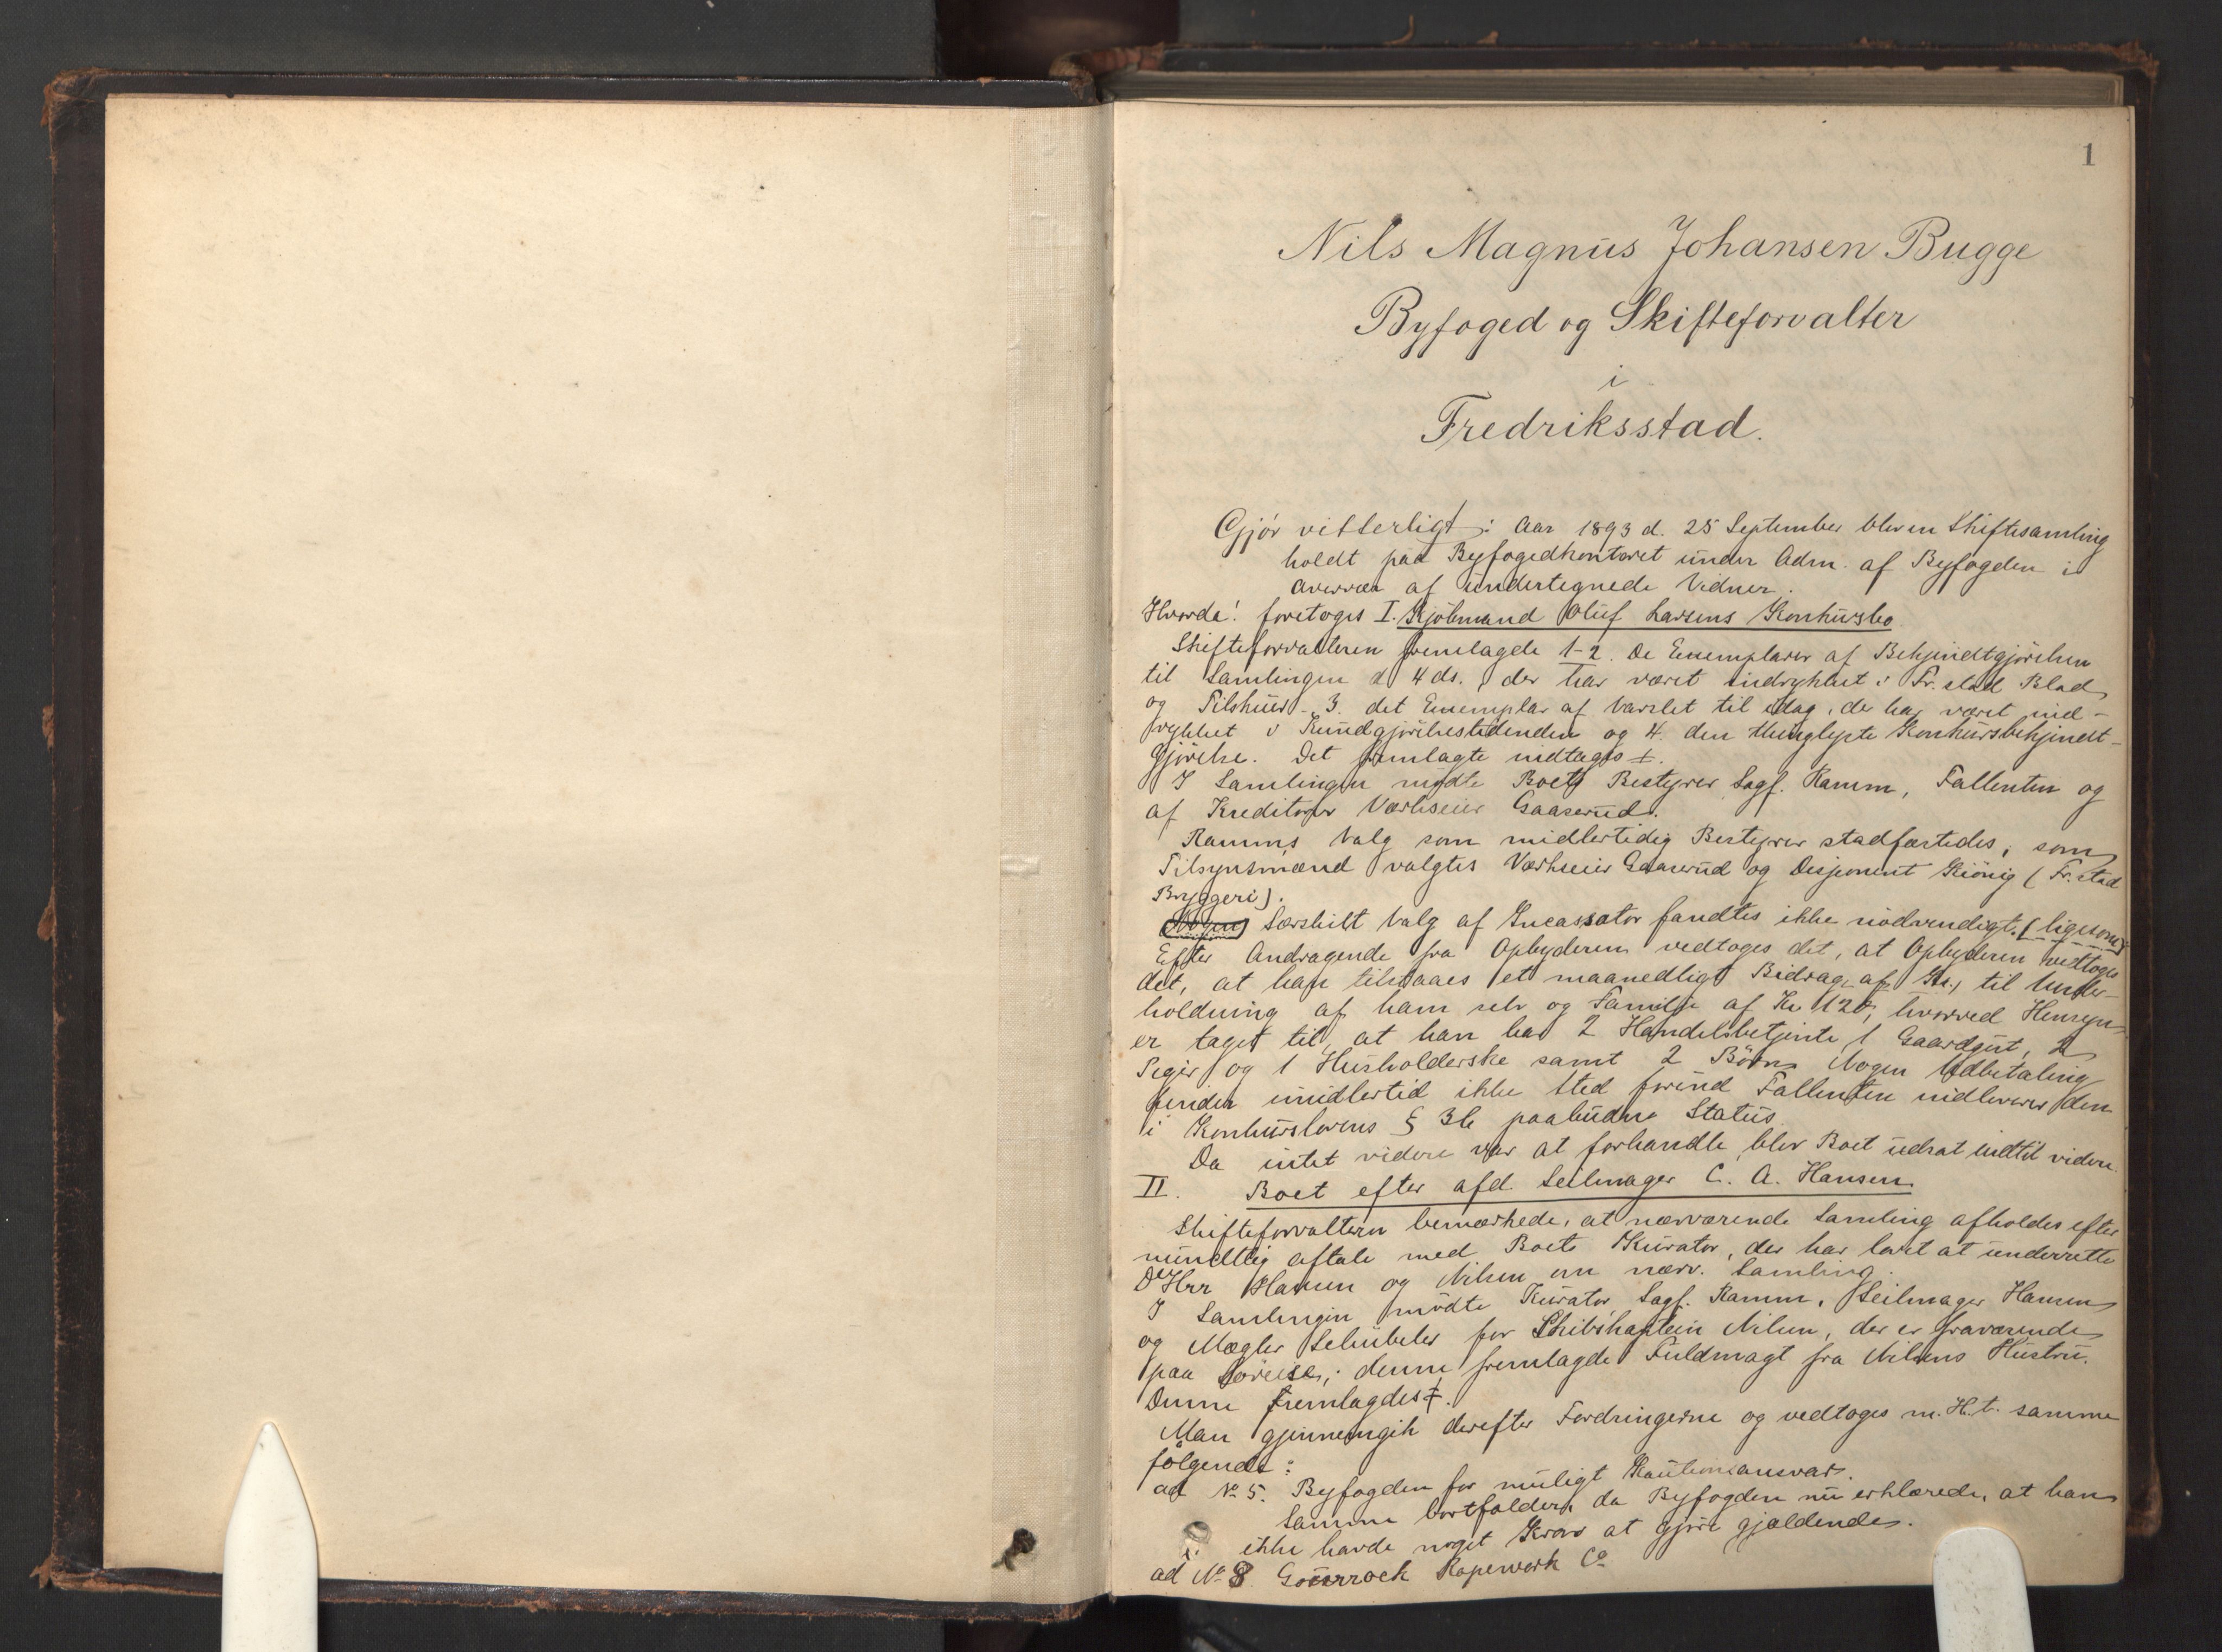 1
Nils Magnus Johansen Bugge
Byfoged og Skifteforvalter
i
Fredriksstad.
Gjør vitterligt: Aar 1893 d. 25 September blev en Skiftesamling
holdt paa Byfogedkontoret under Adm. af Byfogden i
Overvær af undertegnede Vidner.
Hvorda! foretoges I. Kjøbmand Oluf Larsens Konkursbo
Skifteforvalteren fremlagde 1-2. De Exemplarer af Bekjendtgjørelsen
til Samlingen d 4 ds. der har været indrykket i Fr.stad Blad
og Tilskuer - 3. det Exemplar af Varslet til idag, der har været ind-
rykket i Kundgjørelsestidenden og 4. den thinglyste Konkursbekjendt-
gjørelse. Det fremlagte indtages ±.
I Samlingen mødte Boets Bestyrer Sagf. Ramm, Fallenten og
af Kreditorer Værkseier Gaaserud.
Ramms Valg som midlertidig Bestyrer stadfæstedes, som
Tilsynsmænd valgtes Værkseier Gaaserud og Disponent Kiönig (Fr.stad
Bryggeri).
Nogen Særskilt Valg af Incassator fandtes ikke nødvendigt. (ligesom
Efter Andragende fra Opbyderen vedtoges det, at Opbyderen vedtoges
det, at han tilstaaes et maanedligt Bidrag af Kr., til Under-
holdning af ham selv og Familje af Kr 120, hvorved Hensyn
er taget til, at han har 2 Handelsbetjente, 1 Gaardgut, 2
Piger og 1 Husholderske samt 2 Børn. Nogen Udbetaling
finder imidlertid ikke Sted forind Fallenten indleverer den
i Konkurslovens § 36 paabudne Status.
Da intet videre var at forhandle, blev Boet udsat indtil videre.
II. Boet efter afd. Seilmager C. A. Hansen.
Skifteforvalteren bemærkede, at nærværende Samling afholdes efter
mundtlig aftale med Boets Kurator, der har lovet at underrette
DeHrr Hansen og Nilsen om nærv. Samling.
I Samlingen mødte Kurator, Sagf. Ramm, Seilmager Hansen
og Mægler Schübeler for Skibskaptein Nilsen, der er fraværende
paa Søreise; denne fremlagde Fuldmagt fra Nilsens Hustru.
Denne fremlagdes ‡.
Man gjennemgik derefter Fordringerne og vedtoges m.H.t. samme
følgende:
ad No 5. Byfogden for muligt Kautionsansvar.
Samme bortfalder, da Byfogden nu erklærede, at han
ikke havde noget Krav at gjøre gjældende.
ad No 8 Gourrock Ropework Co